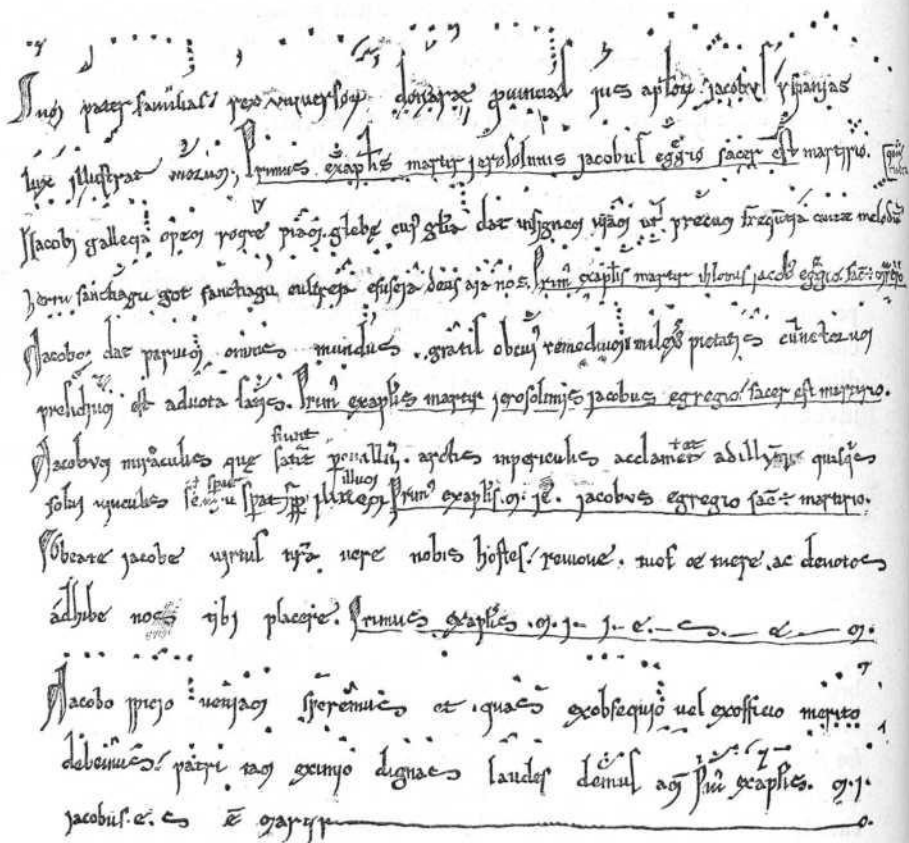 Dum pater familias rex uniuersoꝝ donaret ꝓuincias ius aploꝝ jacobus yspanias
lux illustrat morum; Primus exaplis martir jerosolimis jacobus egregio sacer est martirio.
Jacobi gallecia opem rogat piam glebe cuius głia dat insignem uiam ut precum frequentia cantet melodiam
herru sanctiagu got sanctiagu eultreia esuseia deus aia nos. Primus exaplis martir ihłonis jacob egregio sac̄ ÷ martirio
Jacobo dat parium omnis mundus gratis ob cuius remedium miles pietatis cunctorum
presidium est aduota satis. Primus exaplis martir jerosolimis jacobus egregio sacer est martirio.
Jacobum miraculis que fiunt ꝑ illum. arctis in periculis acclamet ad illum quisquis
solui uinculis sperat ꝓpter illum Primus exaplis. m. ie. jacobus egregio sac̄ ÷ martirio.
O beate jacobe uirtus nr̄a uere nobis hostes remoue. tuos ac tuere. ac deuotos
adhibe nos tibi placere. Primus exaplis . m. i. i. e. s. e. m.
Jacobo ꝓpicio ueniam speremus et . quas exobsequio uel exofficio merito
debemus patri tam eximio dignas laudes demus am̄ Primus exaplis. m. i.
jacobus. e. s ē martir o.